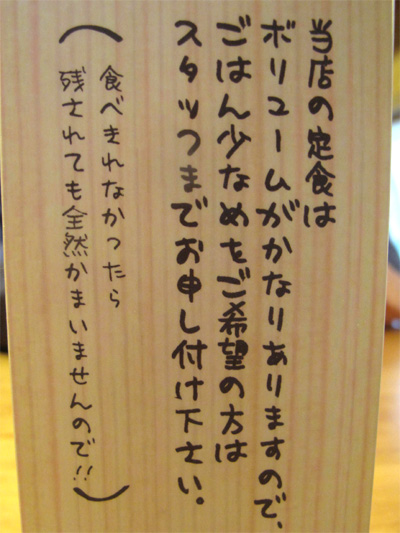 当店の定食は
ボリュームがかなりありますので、
ごはん少なめをご希望の方は
スタッつまでお申し付け下さい。
(食べきれなかったら
残されても全然かまいませんので!!)